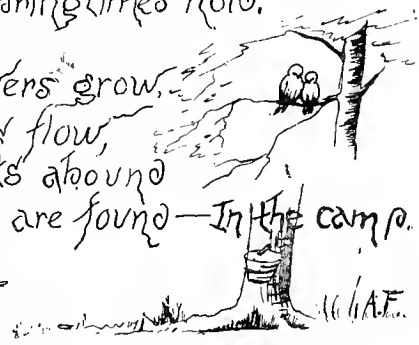 now.
ers grow,
flow,
abound
are found—In the camp.
A.F.